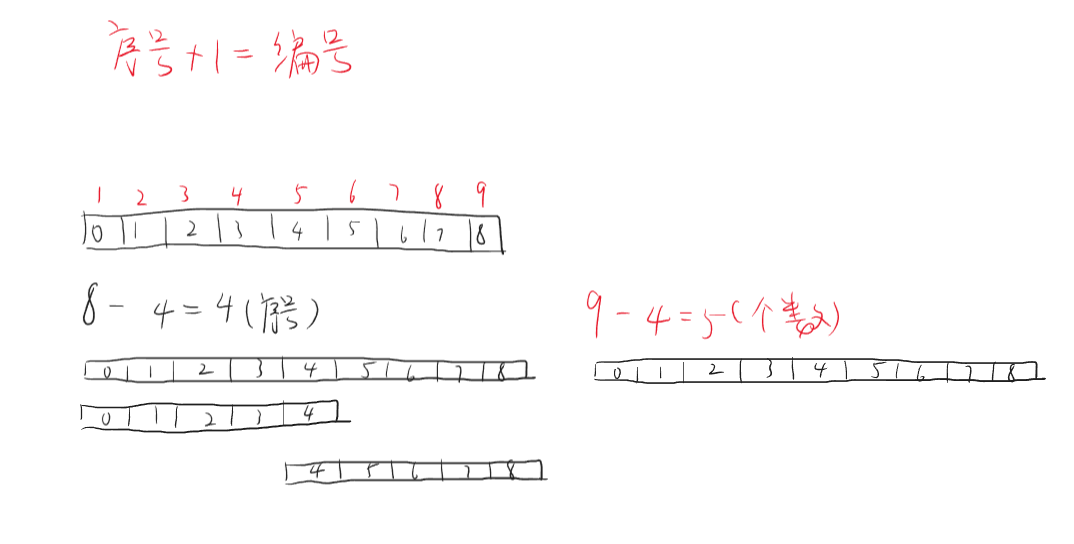 序号+1=编号
1 2 3 4 5 6 7 8 9
0 1 2 3 4 5 6 7 8
8-4=4(序号)
9-4=5(个数)
0 1 2 3 4 5 6 7 8
0 1 2 3 4 5 6 7 8
0 1 2 3 4
4 5 6 7 8